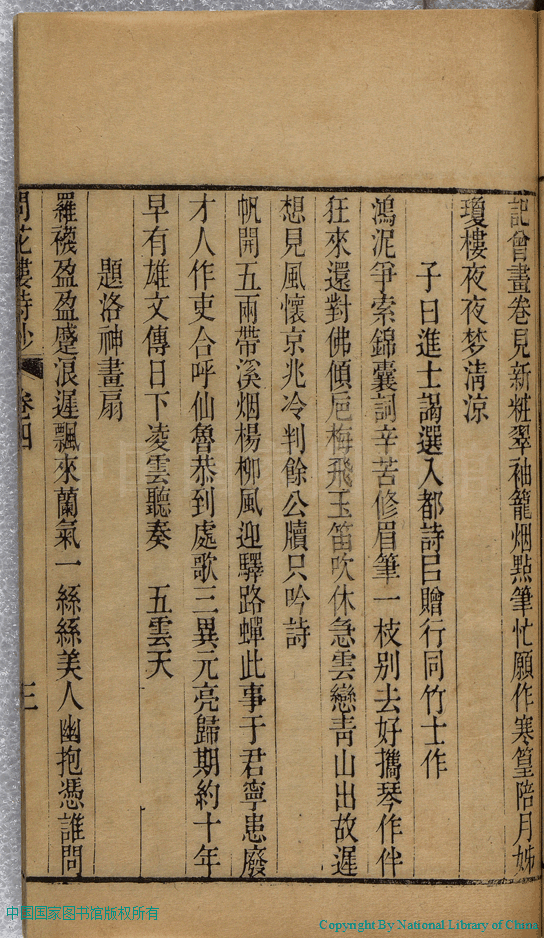 記曾畫卷見新粧翠袖籠烟點筆忙願作寒篁陪月姊
瓊樓夜夜梦清涼
子日進士謁選入都詩㠯贈行同竹士作
鴻泥爭索錦囊詞辛苦修眉筆一枝别去好攜琴作伴
狂來還對佛傾巵梅飛玉笛吹休急雲戀青山出故遲
想見風懷京兆冷判餘公牘只吟詩
帆開五兩帶溪烟楊柳風迎驛路蟬此事于君寧患廢
才人作吏合呼仙魯恭到處歌三異元亮歸期約十年
早有雄文傳日下凌雲聽奏 五雲天
題洛神畫扇
羅襪盈盈蹙浪遲飄來蘭氣一絲絲美人幽抱憑誰問
問花樓詩鈔 卷四 三
中国国家图书馆版权所有
Copyright By National Library of China